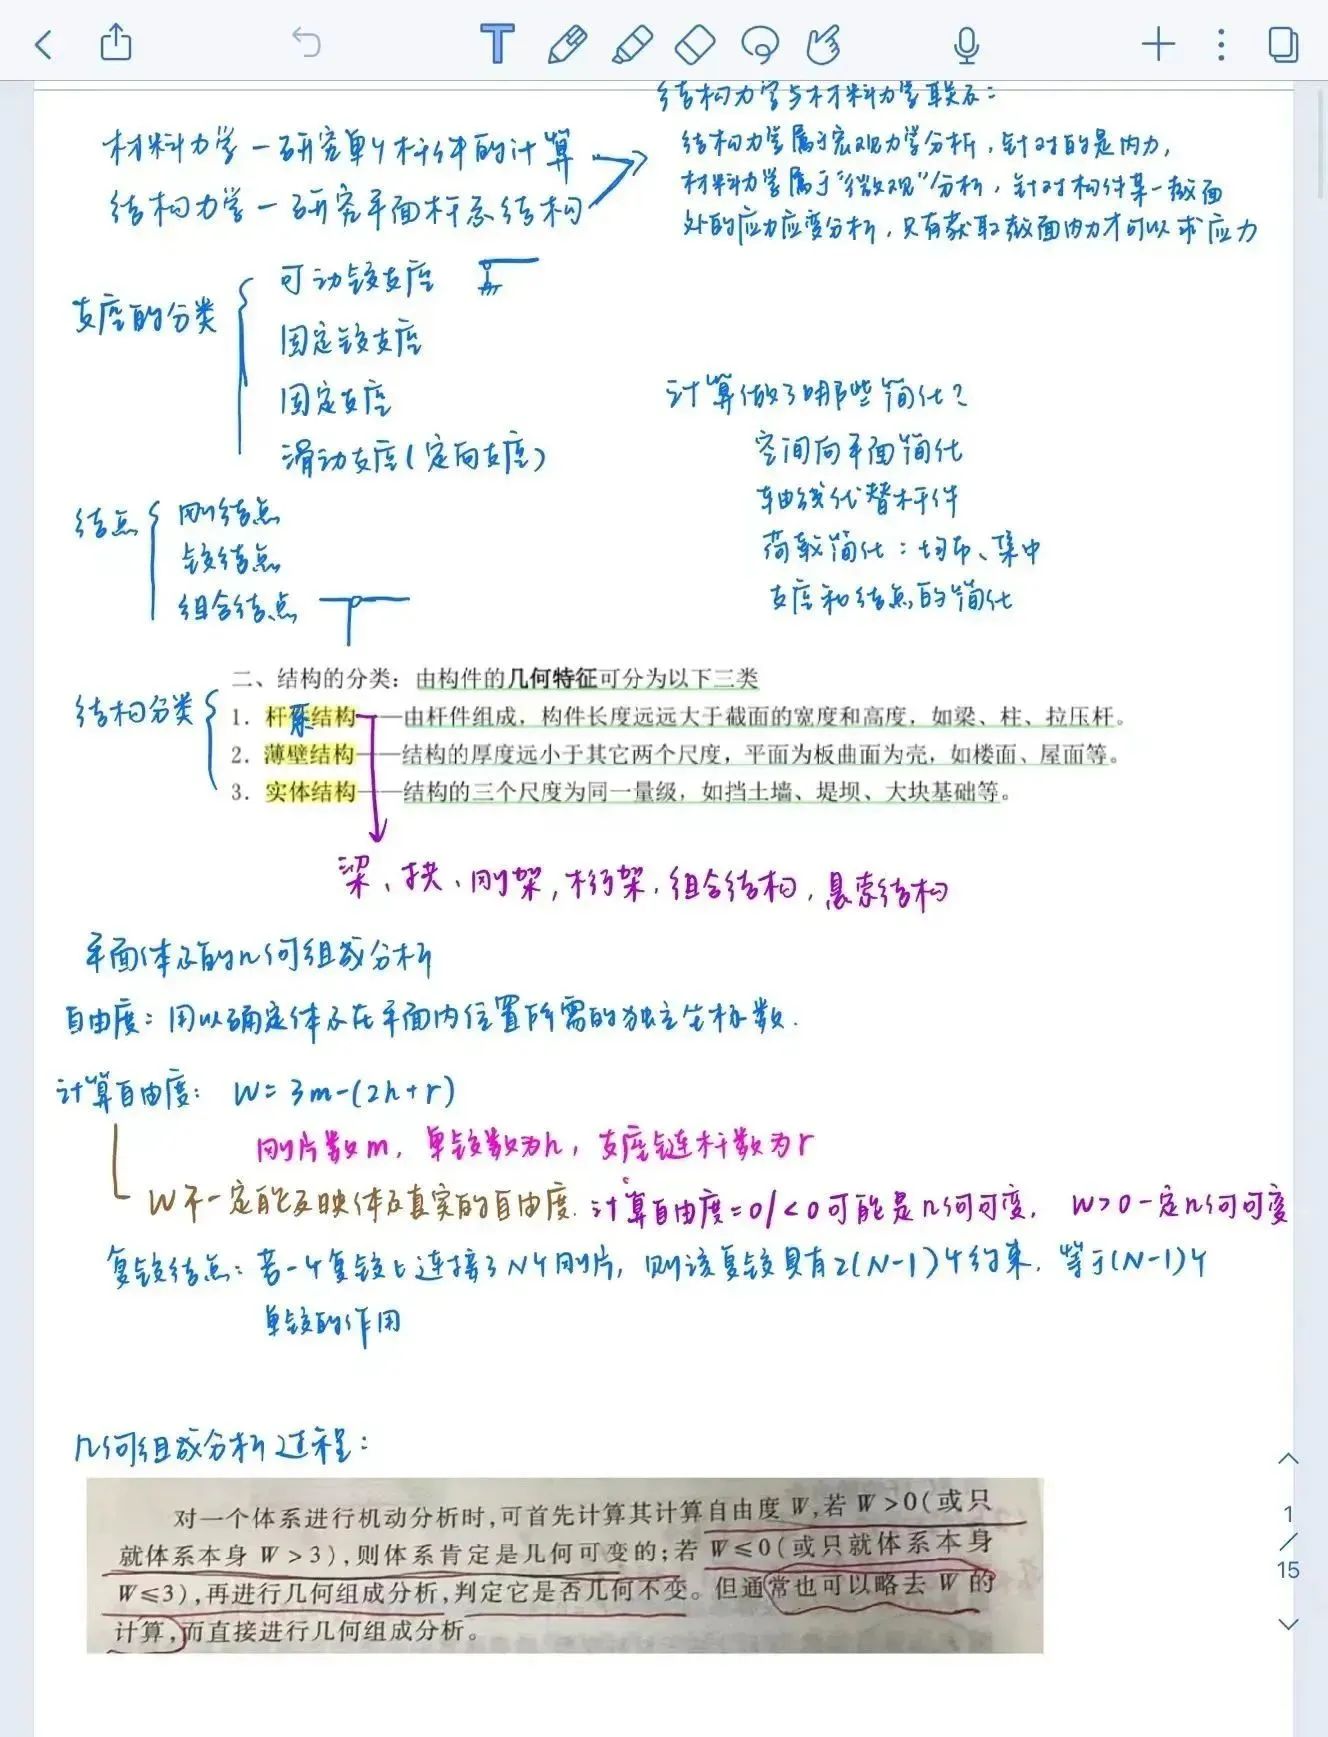 材料力学-研究单个杆件的计算
结构力学-研究平面杆系结构
结构力学与材料力学联系:
结构力学属于宏观力学分析,针对的是内力,
材料力学属于“微观”分析,针对构件某一截面
处的应力应变分析,只有获取截面内力才可以求应力
支座的分类
可动铰支座
固定铰支座
固定支座
滑动支座(定向支座)
计算做了哪些简化?
空间向平面简化
轴线代替杆件
荷载简化:均布、集中
支座和结点的简化
结点
刚结点
铰结点
组合结点
结构分类
二、结构的分类:由构件的几何特征可分为以下三类
1. 杆系结构——由杆件组成,构件长度远远大于截面的宽度和高度,如梁、柱、拉压杆。
2. 薄壁结构——结构的厚度远小于其它两个尺度,平面为板曲面为壳,如楼面、屋面等。
3. 实体结构——结构的三个尺度为同一量级,如挡土墙、堤坝、大块基础等。
梁、拱、刚架,桁架,组合结构,悬索结构
平面体系的几何组成分析
自由度:用以确定体系在平面内位置所需的独立坐标数.
计算自由度: W=3m-(2h+r)
刚片数m,单铰数为h,支座链杆数为r
W不一定能反映体系真实的自由度.计算自由度=0/<0可能是几何可变, W>0一定几何可变
复铰结点:若一个复铰上连接了N个刚片,则该复铰具有2(N-1)个约束,等于(N-1)个
单铰的作用
几何组成分析过程:
对一个体系进行机动分析时,可首先计算其计算自由度 W,若 W>0(或只
就体系本身 W>3),则体系肯定是几何可变的;若 W≤0(或只就体系本身
W≤3),再进行几何组成分析,判定它是否几何不变。但通常也可以略去 W 的
计算,而直接进行几何组成分析。
1
/
15